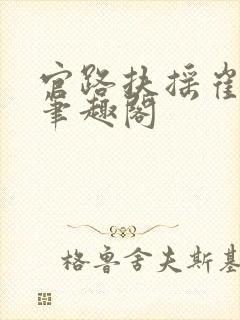 官路扶摇崔
笔趣阁
格鲁舍夫斯基